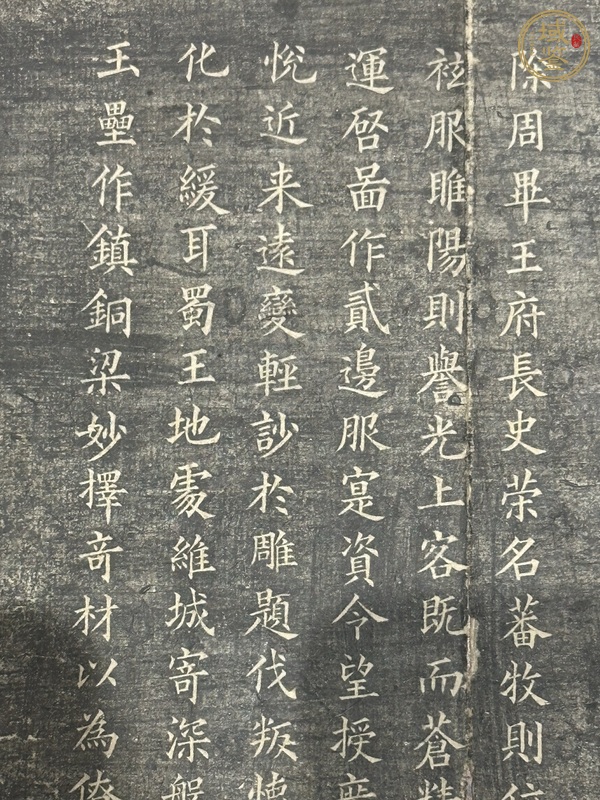 除周畢王府長史荣名蕃牧則位
袨服睢陽則譽光上客既而蒼精
運啓啚作貳邊服寔資令望授
悅近来遠變輕訬於雕題伐叛懐
化於緩耳蜀王地處維城寄深盤
玉壘作鎮銅梁妙擇奇材以為僚